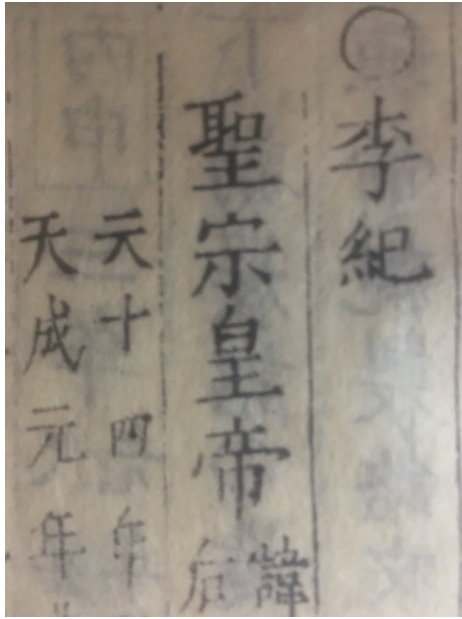 ○李紀
聖宗皇帝
諱
后
十四年
天成元年